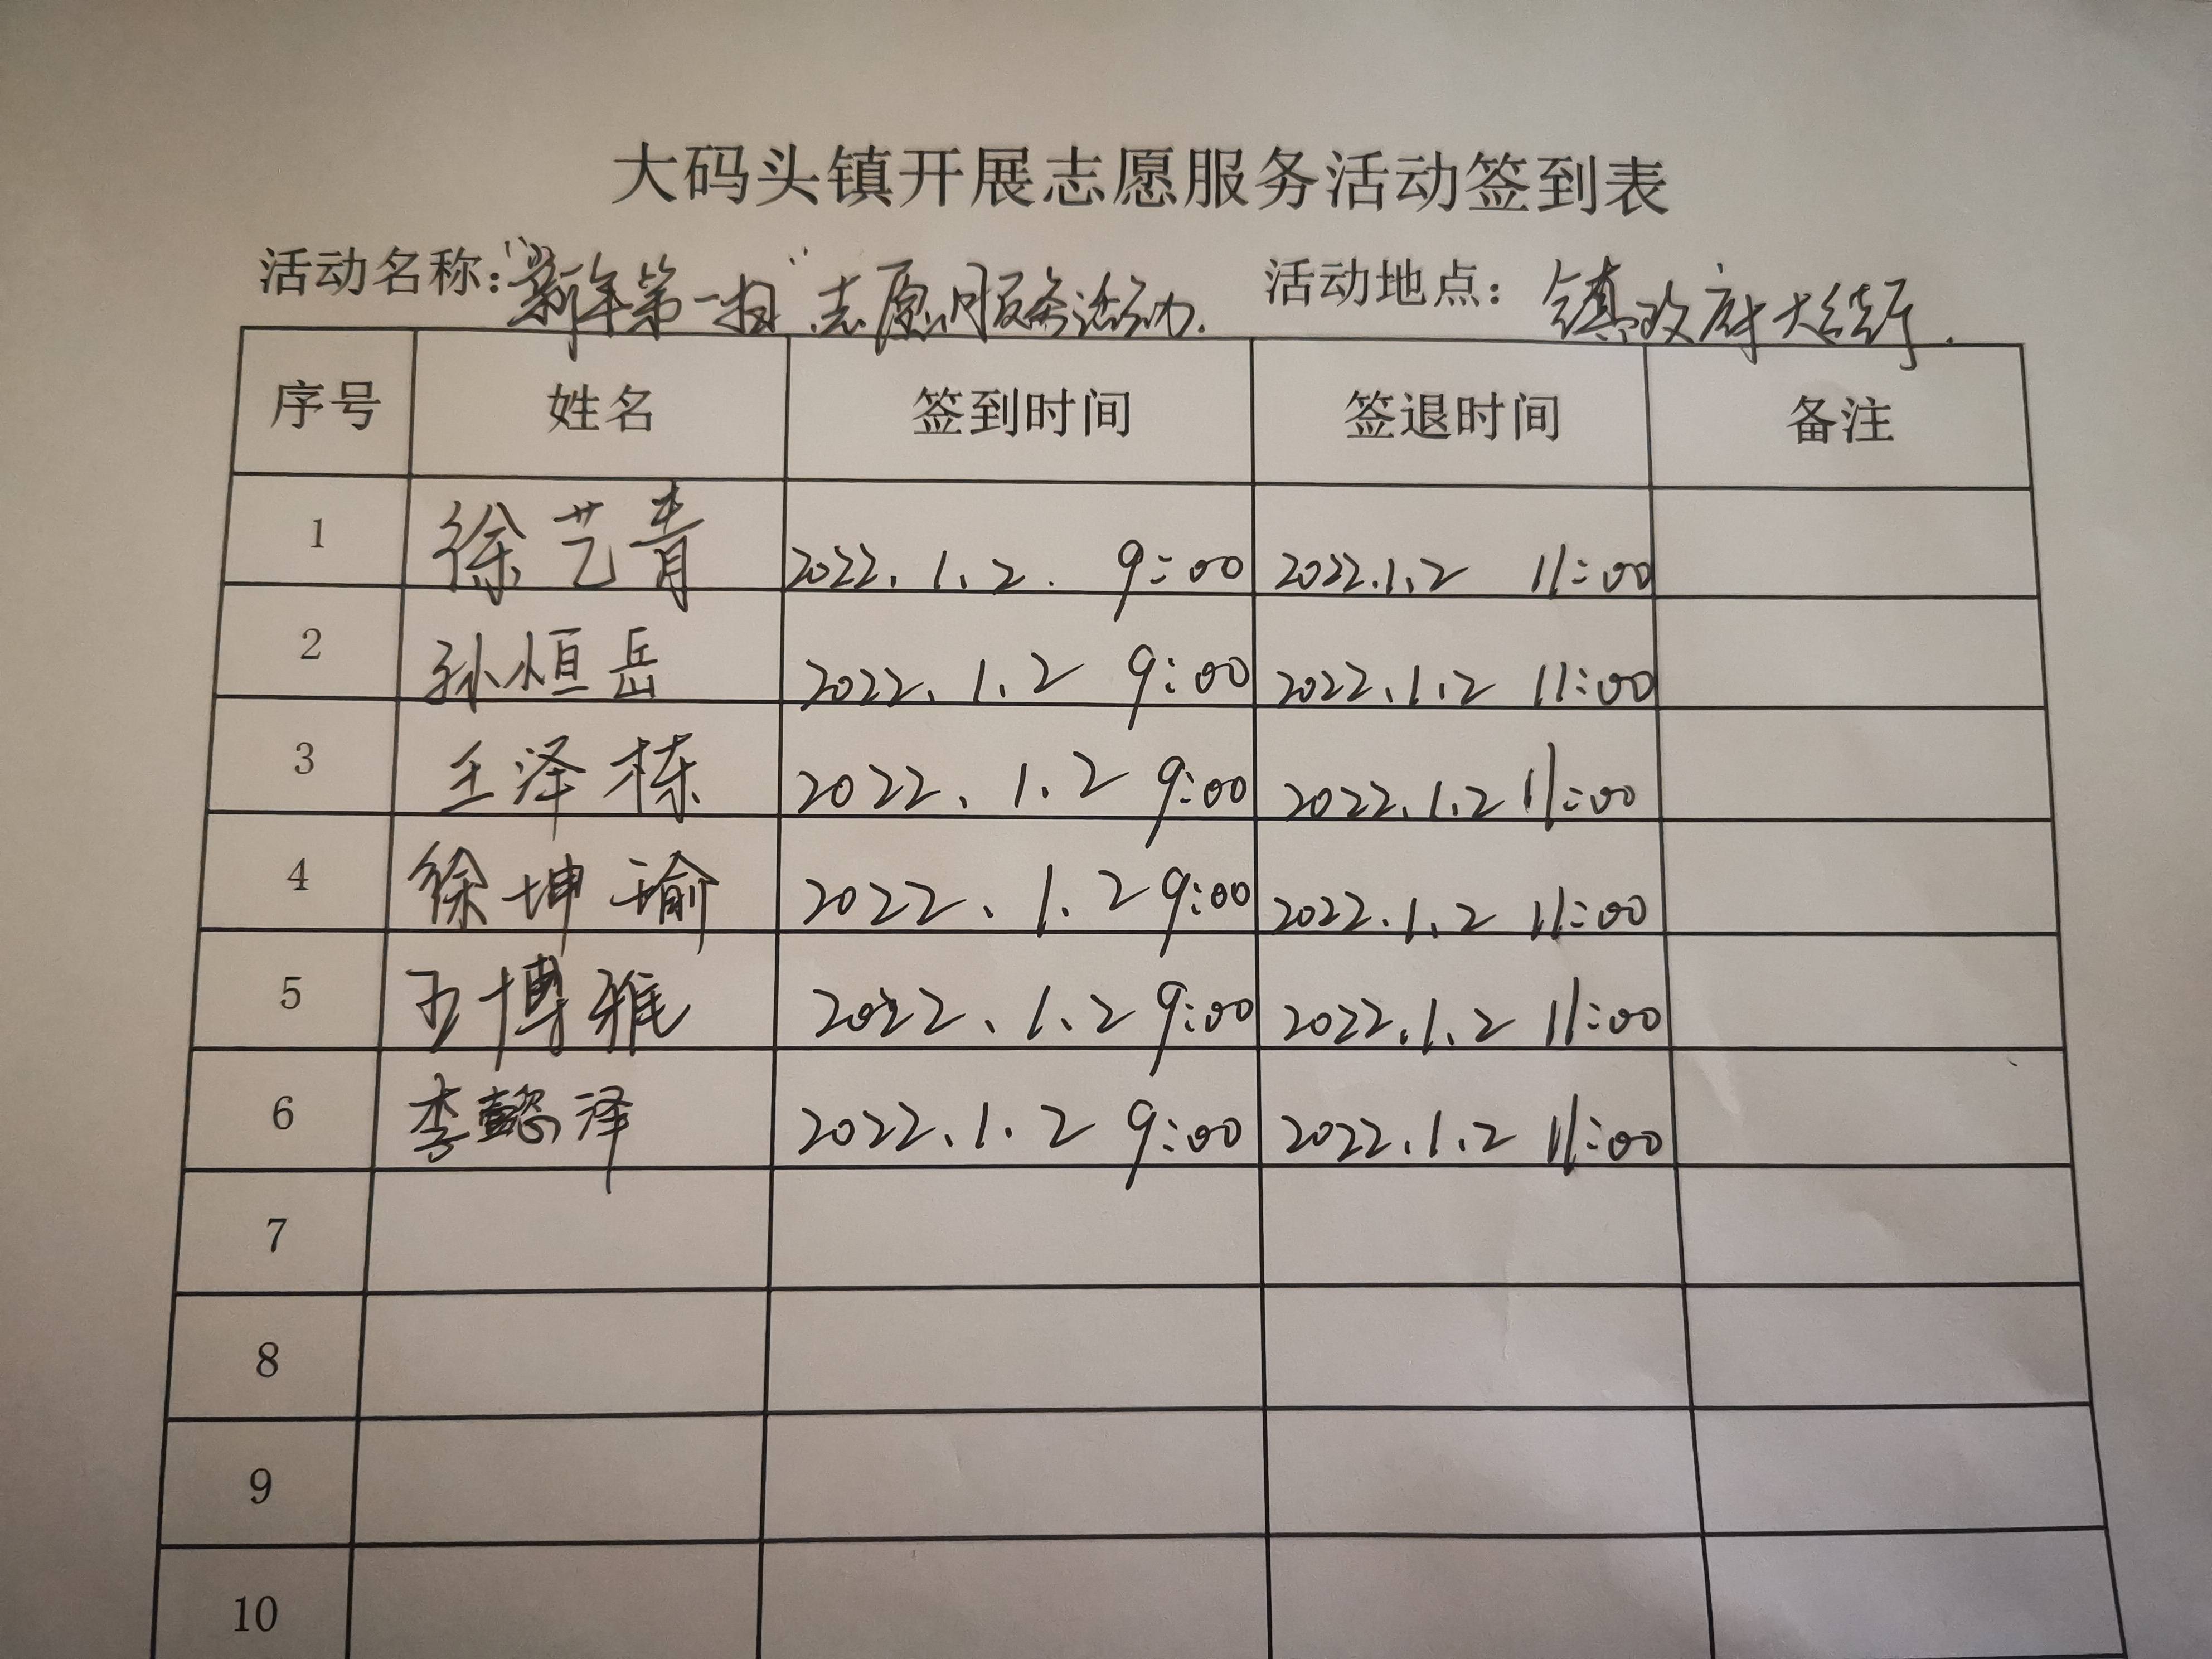 大码头镇开展志愿服务活动签到表
活动名称：“新年第一扫”志愿服务活动. 活动地点：镇政府大院.
序号 姓名 签到时间 签退时间 备注
1 徐艺青 2022.1.2. 9:00 2022.1.2 11:00
2 孙恒岳 2022.1.2 9:00 2022.1.2 11:00
3 王泽栋 2022.1.2 9:00 2022.1.2 11:00
4 徐坤瑜 2022.1.2 9:00 2022.1.2 11:00
5 王博雅 2022.1.2 9:00 2022.1.2 11:00
6 李懿泽 2022.1.2 9:00 2022.1.2 11:00
7
8
9
10